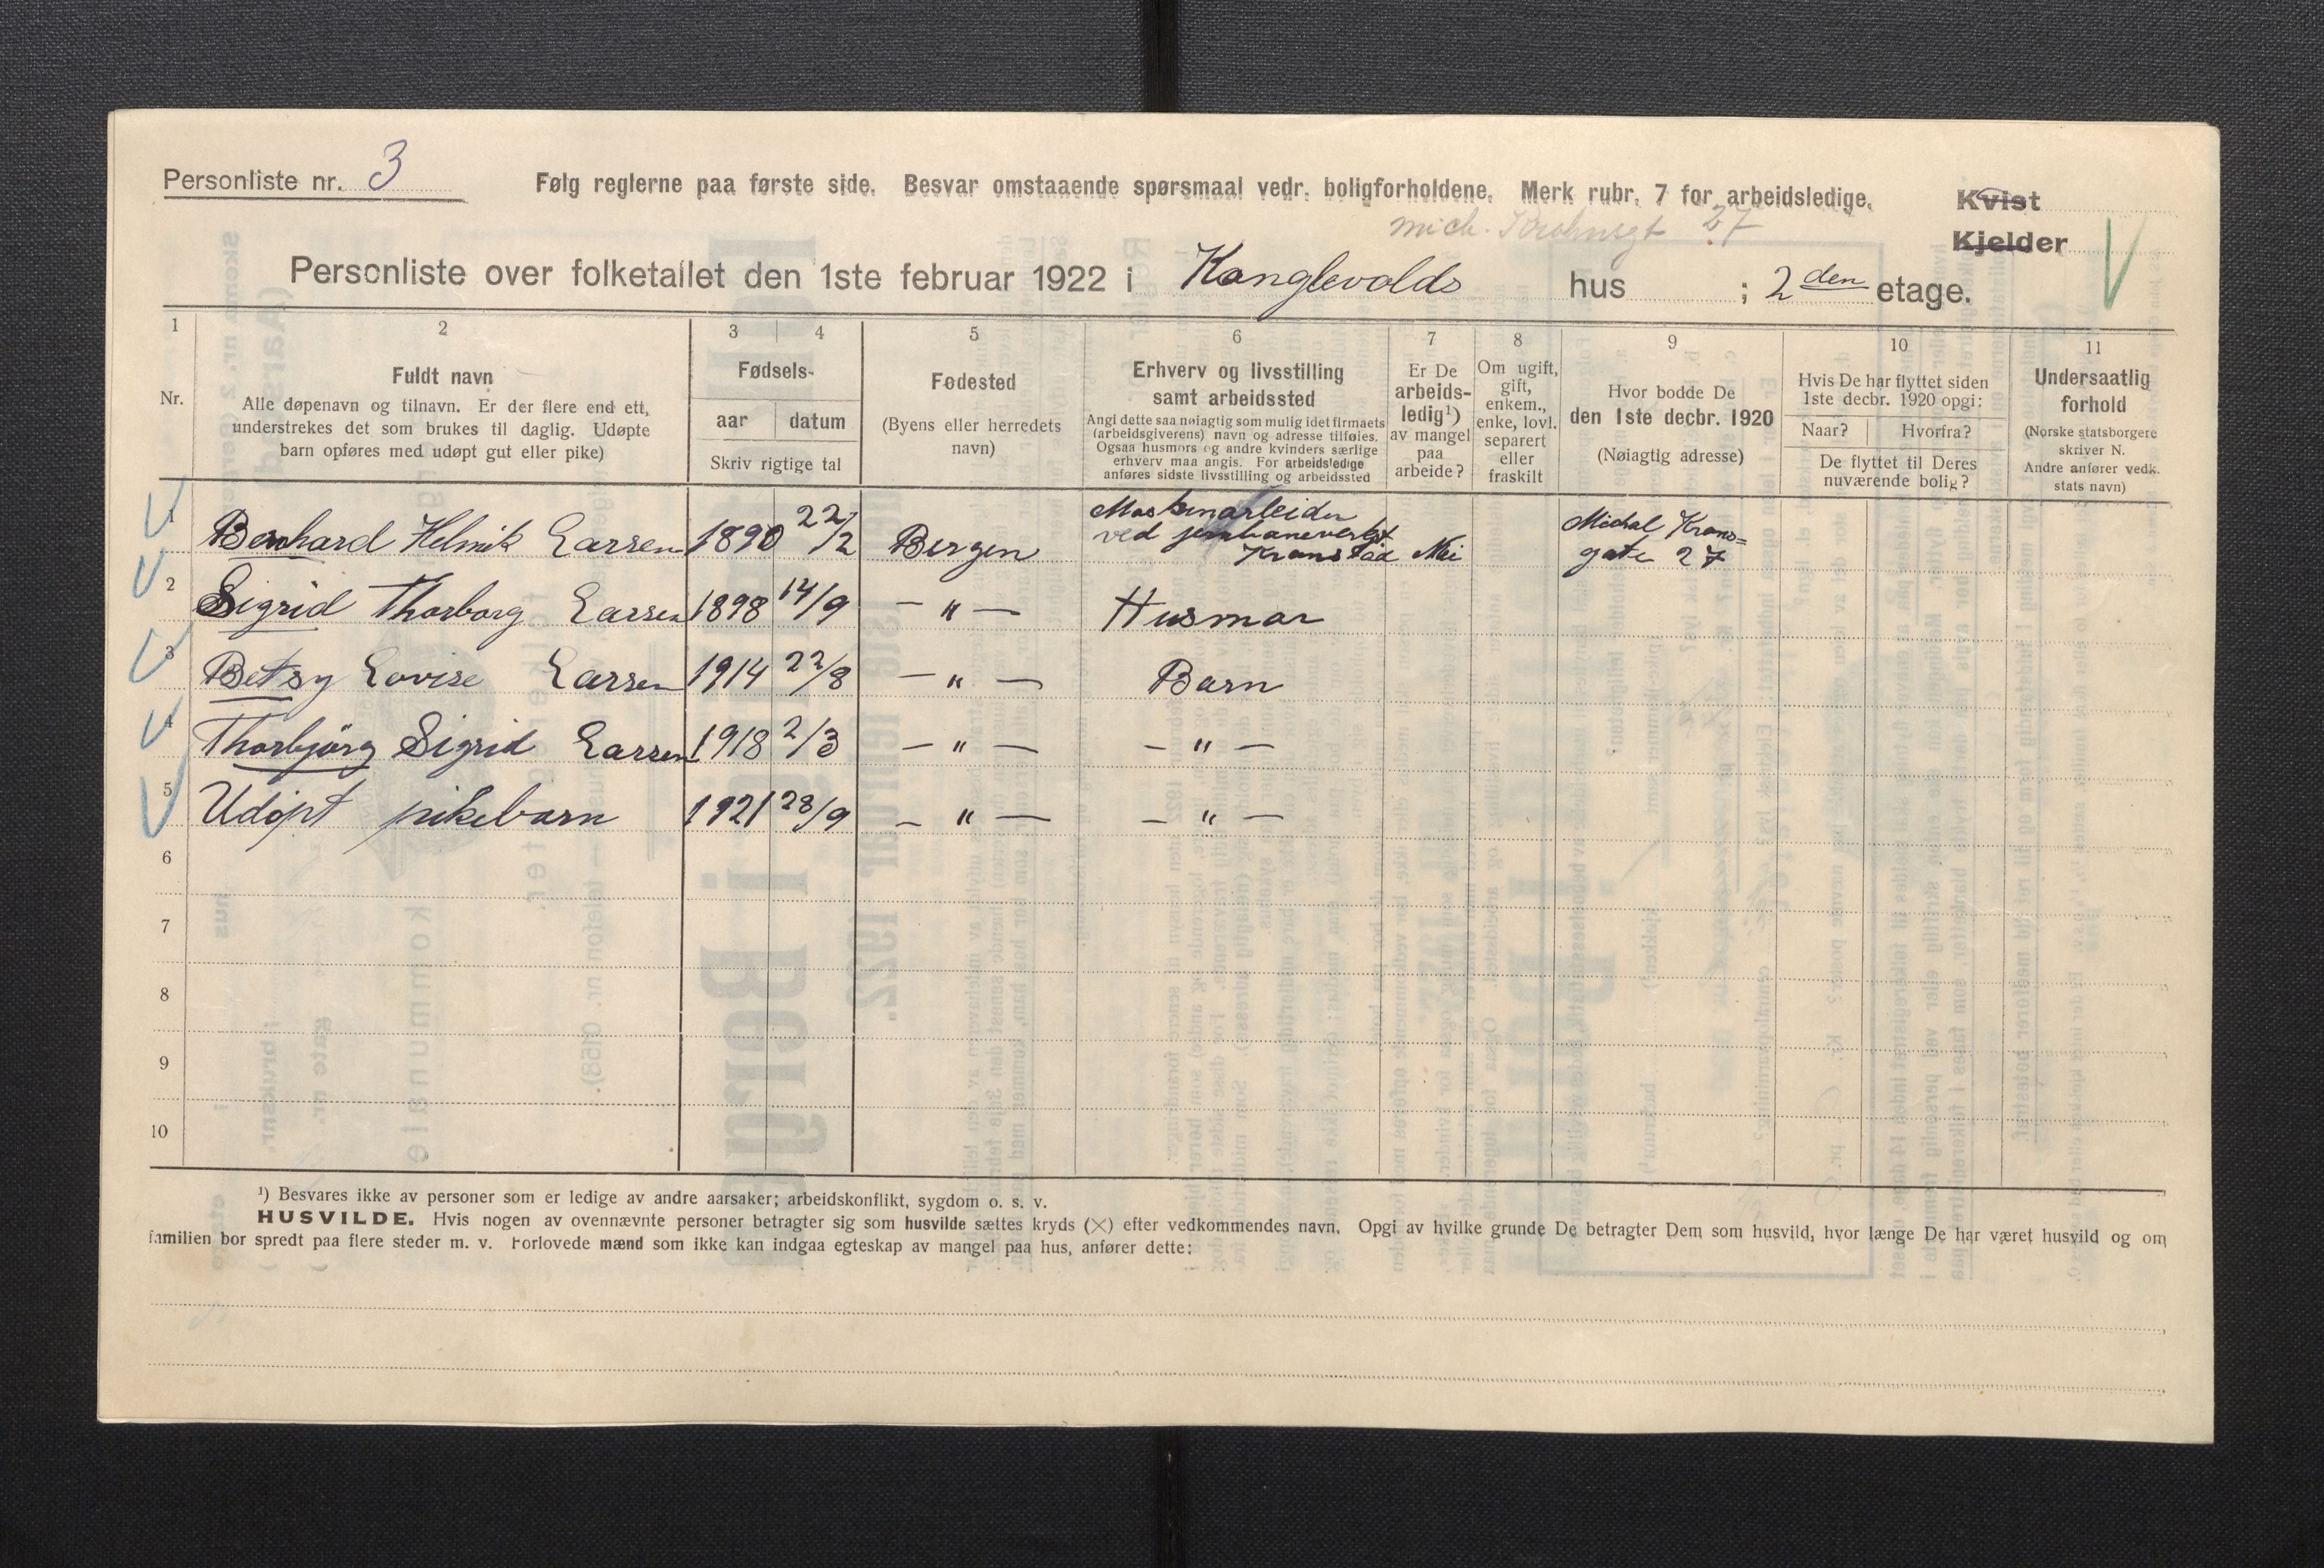 Personliste nr. 3
Følg reglerne paa første side. Besvar omstaaende spørsmaal vedr. boligforholdene. Merk rubr. 7 for arbeidsledige.
Kvist
mich. Krohnsgt 27
Kjelder
Personliste over folketallet den 1ste februar 1922 i Kanglevolds hus ; 2 den etage.
1 2 3 4 5 6 7 8 9 10 11
Nr.
Fuldt navn
Alle døpenavn og tilnavn. Er der flere end ett,
understrekes det som brukes til daglig. Udøpte
barn opføres med udøpt gut eller pike)
Fødsels-
aar datum
Skriv rigtige tal
Fødested
(Byens eller herredets
navn)
Erhverv og livsstilling
samt arbeidssted
Angi dette saa nøiagtig som mulig idet firmaets
(arbeidsgiverens) navn og adresse tilføies.
Ogsaa husmors og andre kvinders særlige
erhverv maa angis. For arbeidsledige
anføres sidste livsstilling og arbeidssted
Er De
arbeids-
ledig¹)
av mangel
paa
arbeide?
Om ugift,
gift,
enkem.,
enke, lovl.
separert
eller
fraskilt
Hvor bodde De
den 1ste decbr. 1920
(Nøiagtig adresse)
Hvis De har flyttet siden
1ste decbr. 1920 opgi:
Naar? Hvorfra?
De flyttet til Deres
nuværende bolig?
Undersaatlig
forhold
(Norske statsborgere
skriver N.
Andre anfører vedk.
stats navn)
1 Bernhard Helmik Larsen 1890 22/2 Bergen Maskinarbeider
ved jernbaneverkst
Kronstad Nei Michal Krons=
gate 27
2 Sigrid Thorborg Larsen 1898 14/9 — " — Husmor
3 Betsy Lovise Larsen 1914 22/8 — " — Barn
4 Thorbjörg Sigrid Larsen 1918 2/3 — " — — " —
5 Udöpt pikebarn 1921 28/9 — " — — " —
6
7
8
9
10
¹) Besvares ikke av personer som er ledige av andre aarsaker; arbeidskonflikt, sygdom o. s. v.
HUSVILDE. Hvis nogen av ovennævnte personer betragter sig som husvilde sættes kryds (×) efter vedkommendes navn. Opgi av hvilke grunde De betragter Dem som husvild, hvor længe De har været husvild og om
familien bor spredt paa flere steder m. v. Forlovede mænd som ikke kan indgaa egteskap av mangel paa hus, anfører dette: